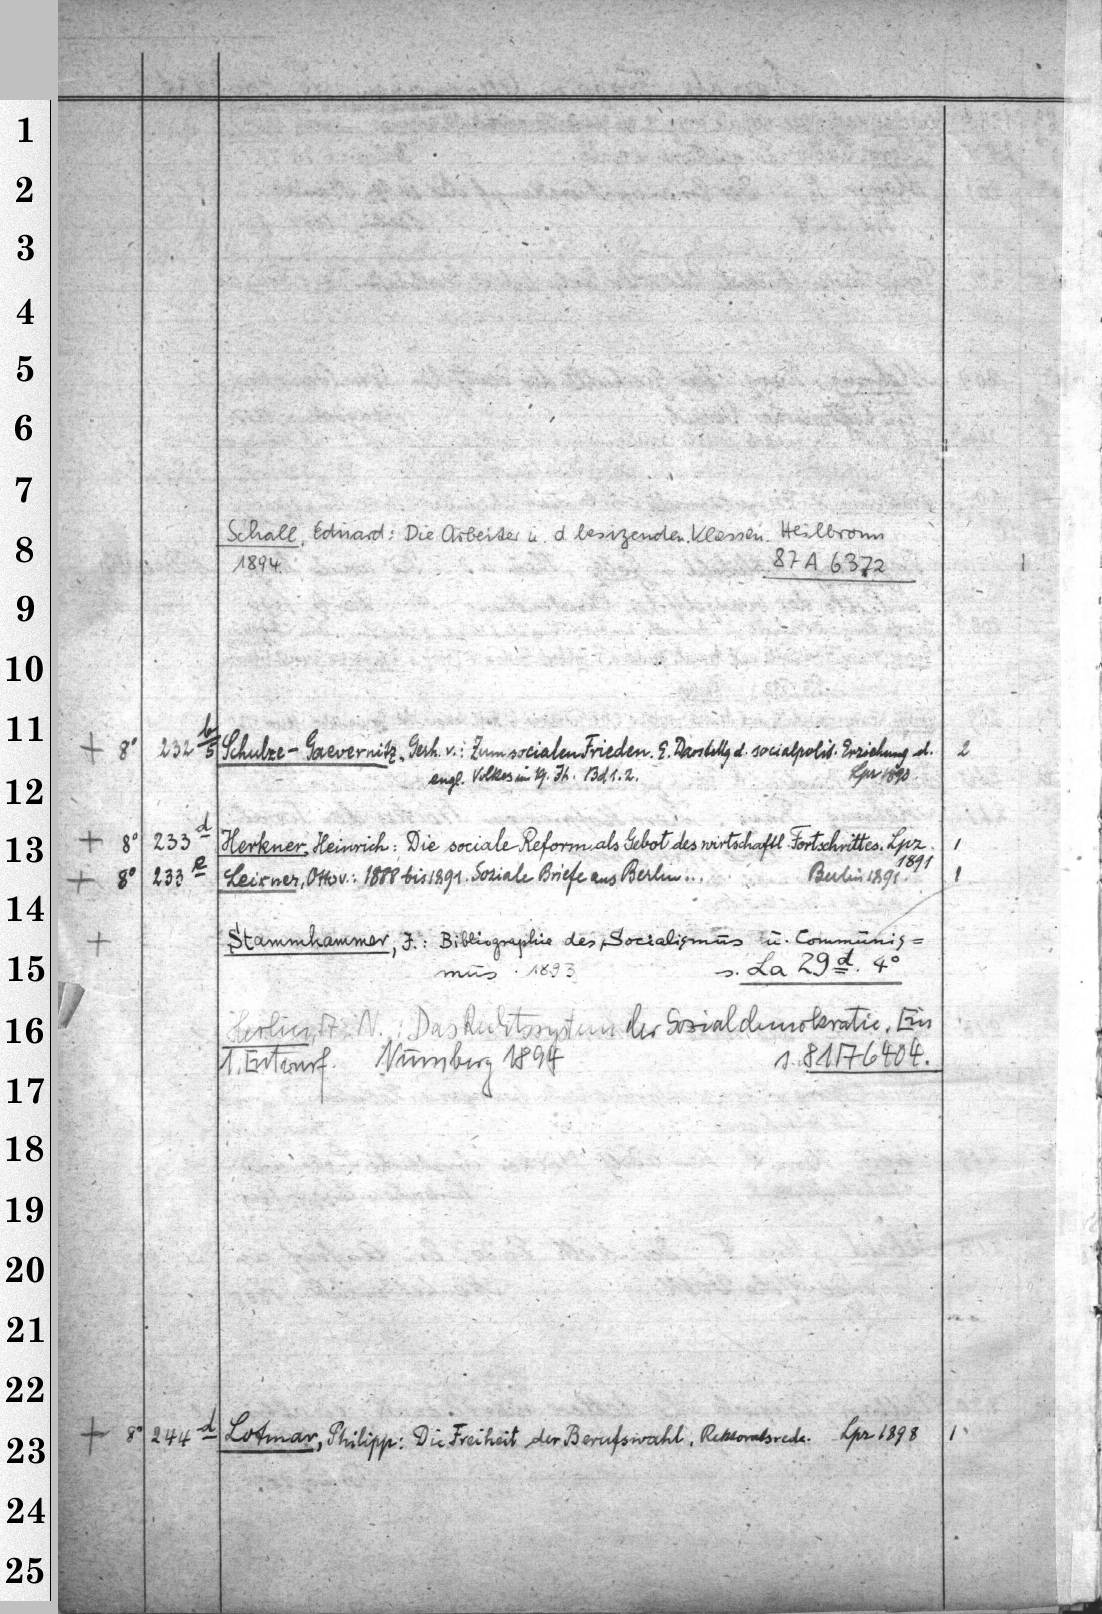 1
2
3
4
5
6
7
Schall, Eduard: Die Arbeiter u. d. besizenden Klassen. Heilbronn
8
1894. 87 A 6372
9
10
11
+ 8° 232 b/5 Schulze-Gaevernitz, Gerh. v.: Zum socialen Frieden. E. Darstellg d. socialpolit. Erziehung d. 2
engl. Volkes im 19. Jh. Bd 1. 2. Lpz 1890.
12
13 + 8° 233 d Herkner, Heinrich: Die sociale Reform als Gebot des wirtschaftl. Fortschrittes. Lpz. 1
1891
+ 8° 233 e Leixner, Otto v.: 1888 bis 1891. Soziale Briefe aus Berlin... Berlin 1891. 1
14
+ Stammhammer, J.: Bibliographie des Socialismus u. Communis=
15 mus. 1893 s. La 29 d. 4°
16 A. N.: Das Rechtssystem der Sozialdemokratie. Ein
1. Entwurf. Nürnberg 1894 s. 81 76404.
17
18
19
20
21
22
23 + 8° 244 d Lotmar, Philipp: Die Freiheit der Berufswahl. Rektoratsrede. Lpz 1898 1
24
25